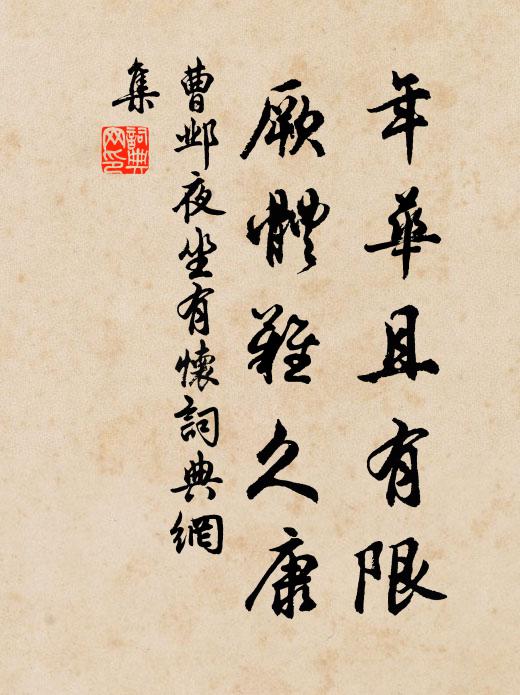 年華且有限
厥體難久康
曹邺夜坐有懷詞典網
集
詞典
网印